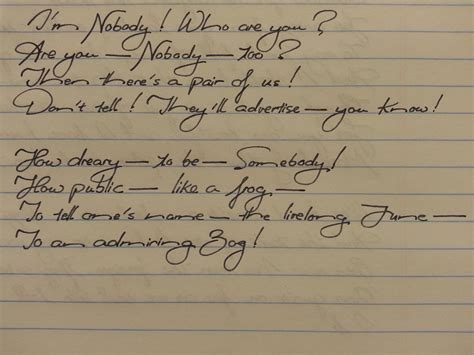 I'm Nobody! Who are you?
Are you — Nobody — too?
Then there's a pair of us!
Don't tell! They'll advertise — you know!
How dreary — to be — Somebody!
How public — like a frog —
To tell one's name — the livelong June —
To an admiring Bog!